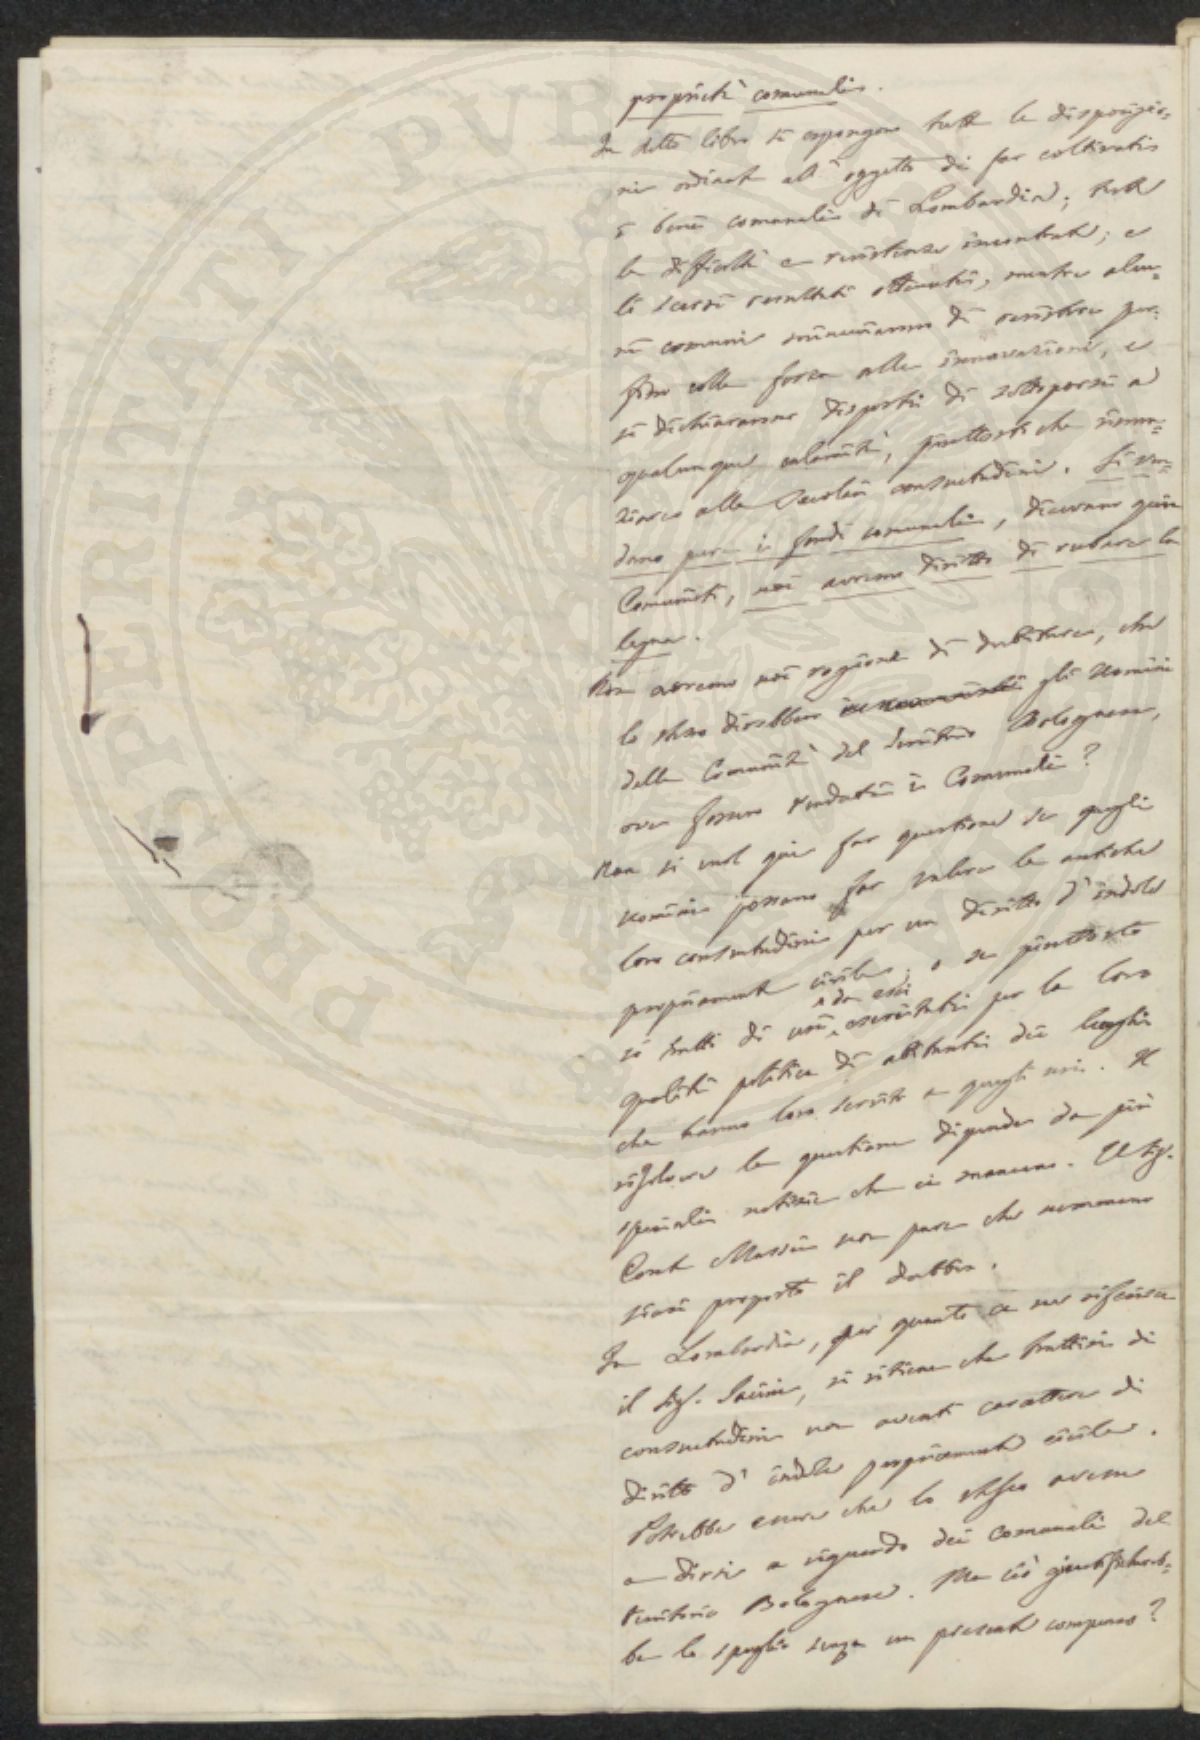 proprietà comunali.
In detto libro si espongono tutte le disposizio=
ni ordinate all'oggetto di far coltivati
i beni comunali di Lombardia; tutte
le difficoltà e resistenze incontrate; e
li scarsi resultati ottenuti, mentre alcu=
ni comuni minacciarono di resistere per
fino colla forza alle innovazioni, e
si dichiararono disposti di sottoporsi a
qualunque calamità, piuttosto che rinun=
ziare alle secolari consuetudini. Si ven=
dano pure i fondi comunali, dicevano quei
Comunisti, noi avremo diritto di rubare la
legna.
Non avremo noi ragione di dubitare, che
lo stesso direbbero gli uomini
delle Comunità del territorio Bolognese,
ove fossero venduti i Comunali?
Non si vuol qui far questione se quegli
uomini possano far valere le antiche
loro consuetudini per un diritto d'indole
propriamente civile; o se piuttosto
si tratti di usi da essi esercitati per la loro
qualità politica di abitanti dei luoghi
che hanno loro servito a quegli usi. Il
risolvere la questione dipende da più
speciali notizie che ci mancano. Il Sig.
Conte Massei non pare che nemmeno
siasi proposto il dubbio.
In Lombardia, per quanto ce ne riferisce
il Sig. Jacini, si ritiene che trattisi di
consuetudini non aventi carattere di
diritto d'indole propriamente civile.
Potrebbe essere che lo stesso avesse
a dirsi a riguardo dei Comunali del
territorio Bolognese. Ma ciò giustificareb=
be lo spoglio senza un presente compenso?
PROSPERITATI PVB